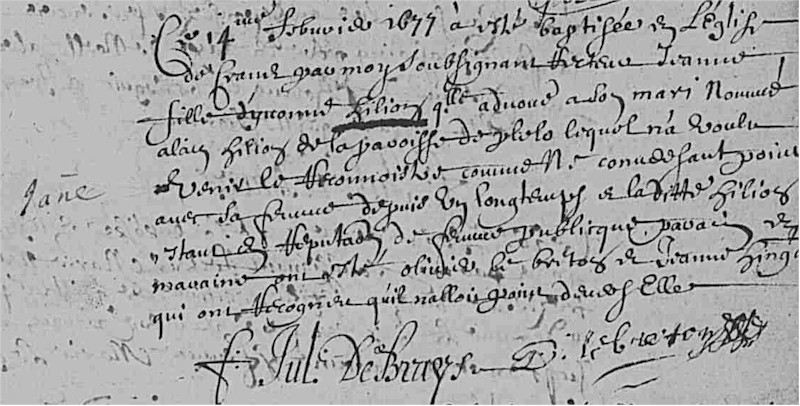 Ce 14 iesme febvrier 1677 a esté baptisée en L'église
de par moy soubsignant Recteur Jeanne
fille d'yvonne hilion qlle advoue a son mari Nommé
alain hilion de la paroisse de plelo lequel n'a voulu
venir le Reconnoistre comme Ne conversant point
Jañe
avec sa femme depuis un longtemps et laditte hilion
estant en Reputaõn de femme publicque, parain et
maraine ont esté olivier le breton et Jeanne
qui ont Recogneu qu'il n'alloit point devers Elle
f. Jul. De Bruys O. le breton